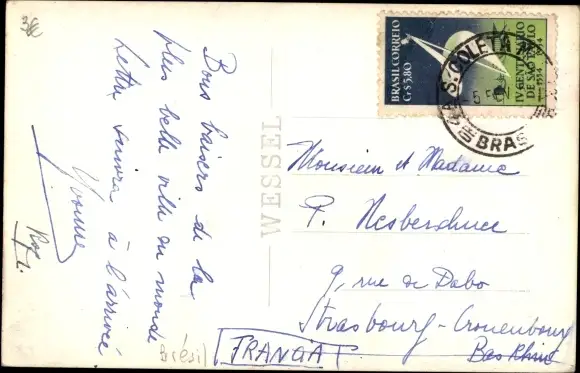 3€
Bons baisers de la
plus belle ville du monde
Lettre suivra à l'arrivée
Yvonne
Brésil
WESSEL
BRASIL CORREIO
Cr$ 5,80
IV CENTENÁRIO
DE SÃO PAULO
1954
S. COLETA
5 FEV
BRA
Monsieur et Madame
P.
9, rue de Dabo
Strasbourg-Cronenbourg
Bas Rhin
FRANÇA